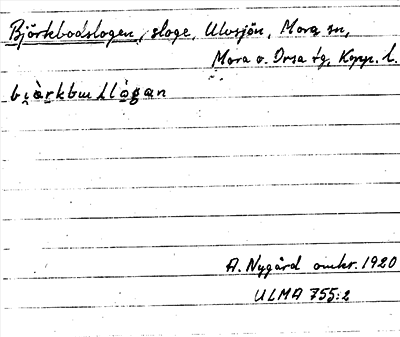 Björkbodslogen, sloge, Ulvsjön, Mora sn,
Mora o. Orsa tg, Kopp. l.
A. Nygård omkr. 1920
ULMA 755:2